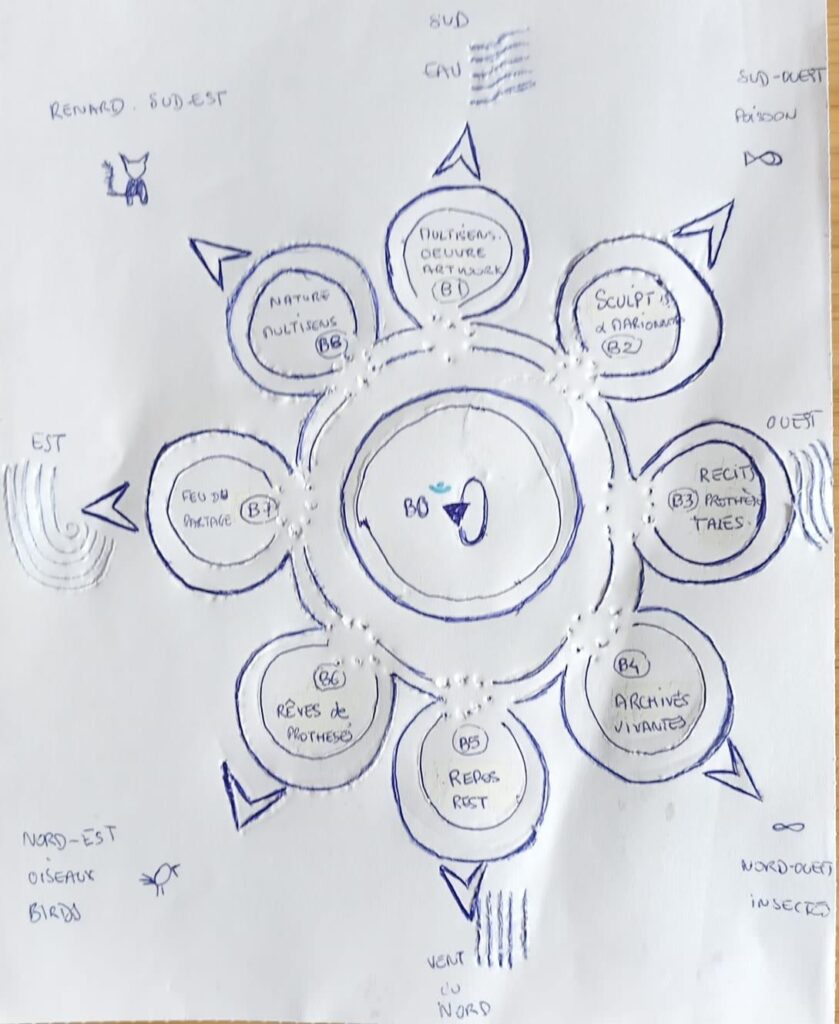 SUD
EAU
SUD-OUEST
POISSON
RENARD. SUD-EST
MULTISENS.
OEUVRE
ARTWORK
B1
SCULPT
& MARIONNET
B2
NATURE
MULTISENS
B8
EST
OUEST
RECITS
B3 PROTHÈSE
TALES.
FEU DU
PARTAGE B7
B0
B6
RÊVES de
PROTHESES
B4
ARCHIVES
VIVANTES
B5
REPOS
REST
NORD-EST
OISEAUX
BIRDS
NORD-OUEST
INSECTES
VENT
du
NORD